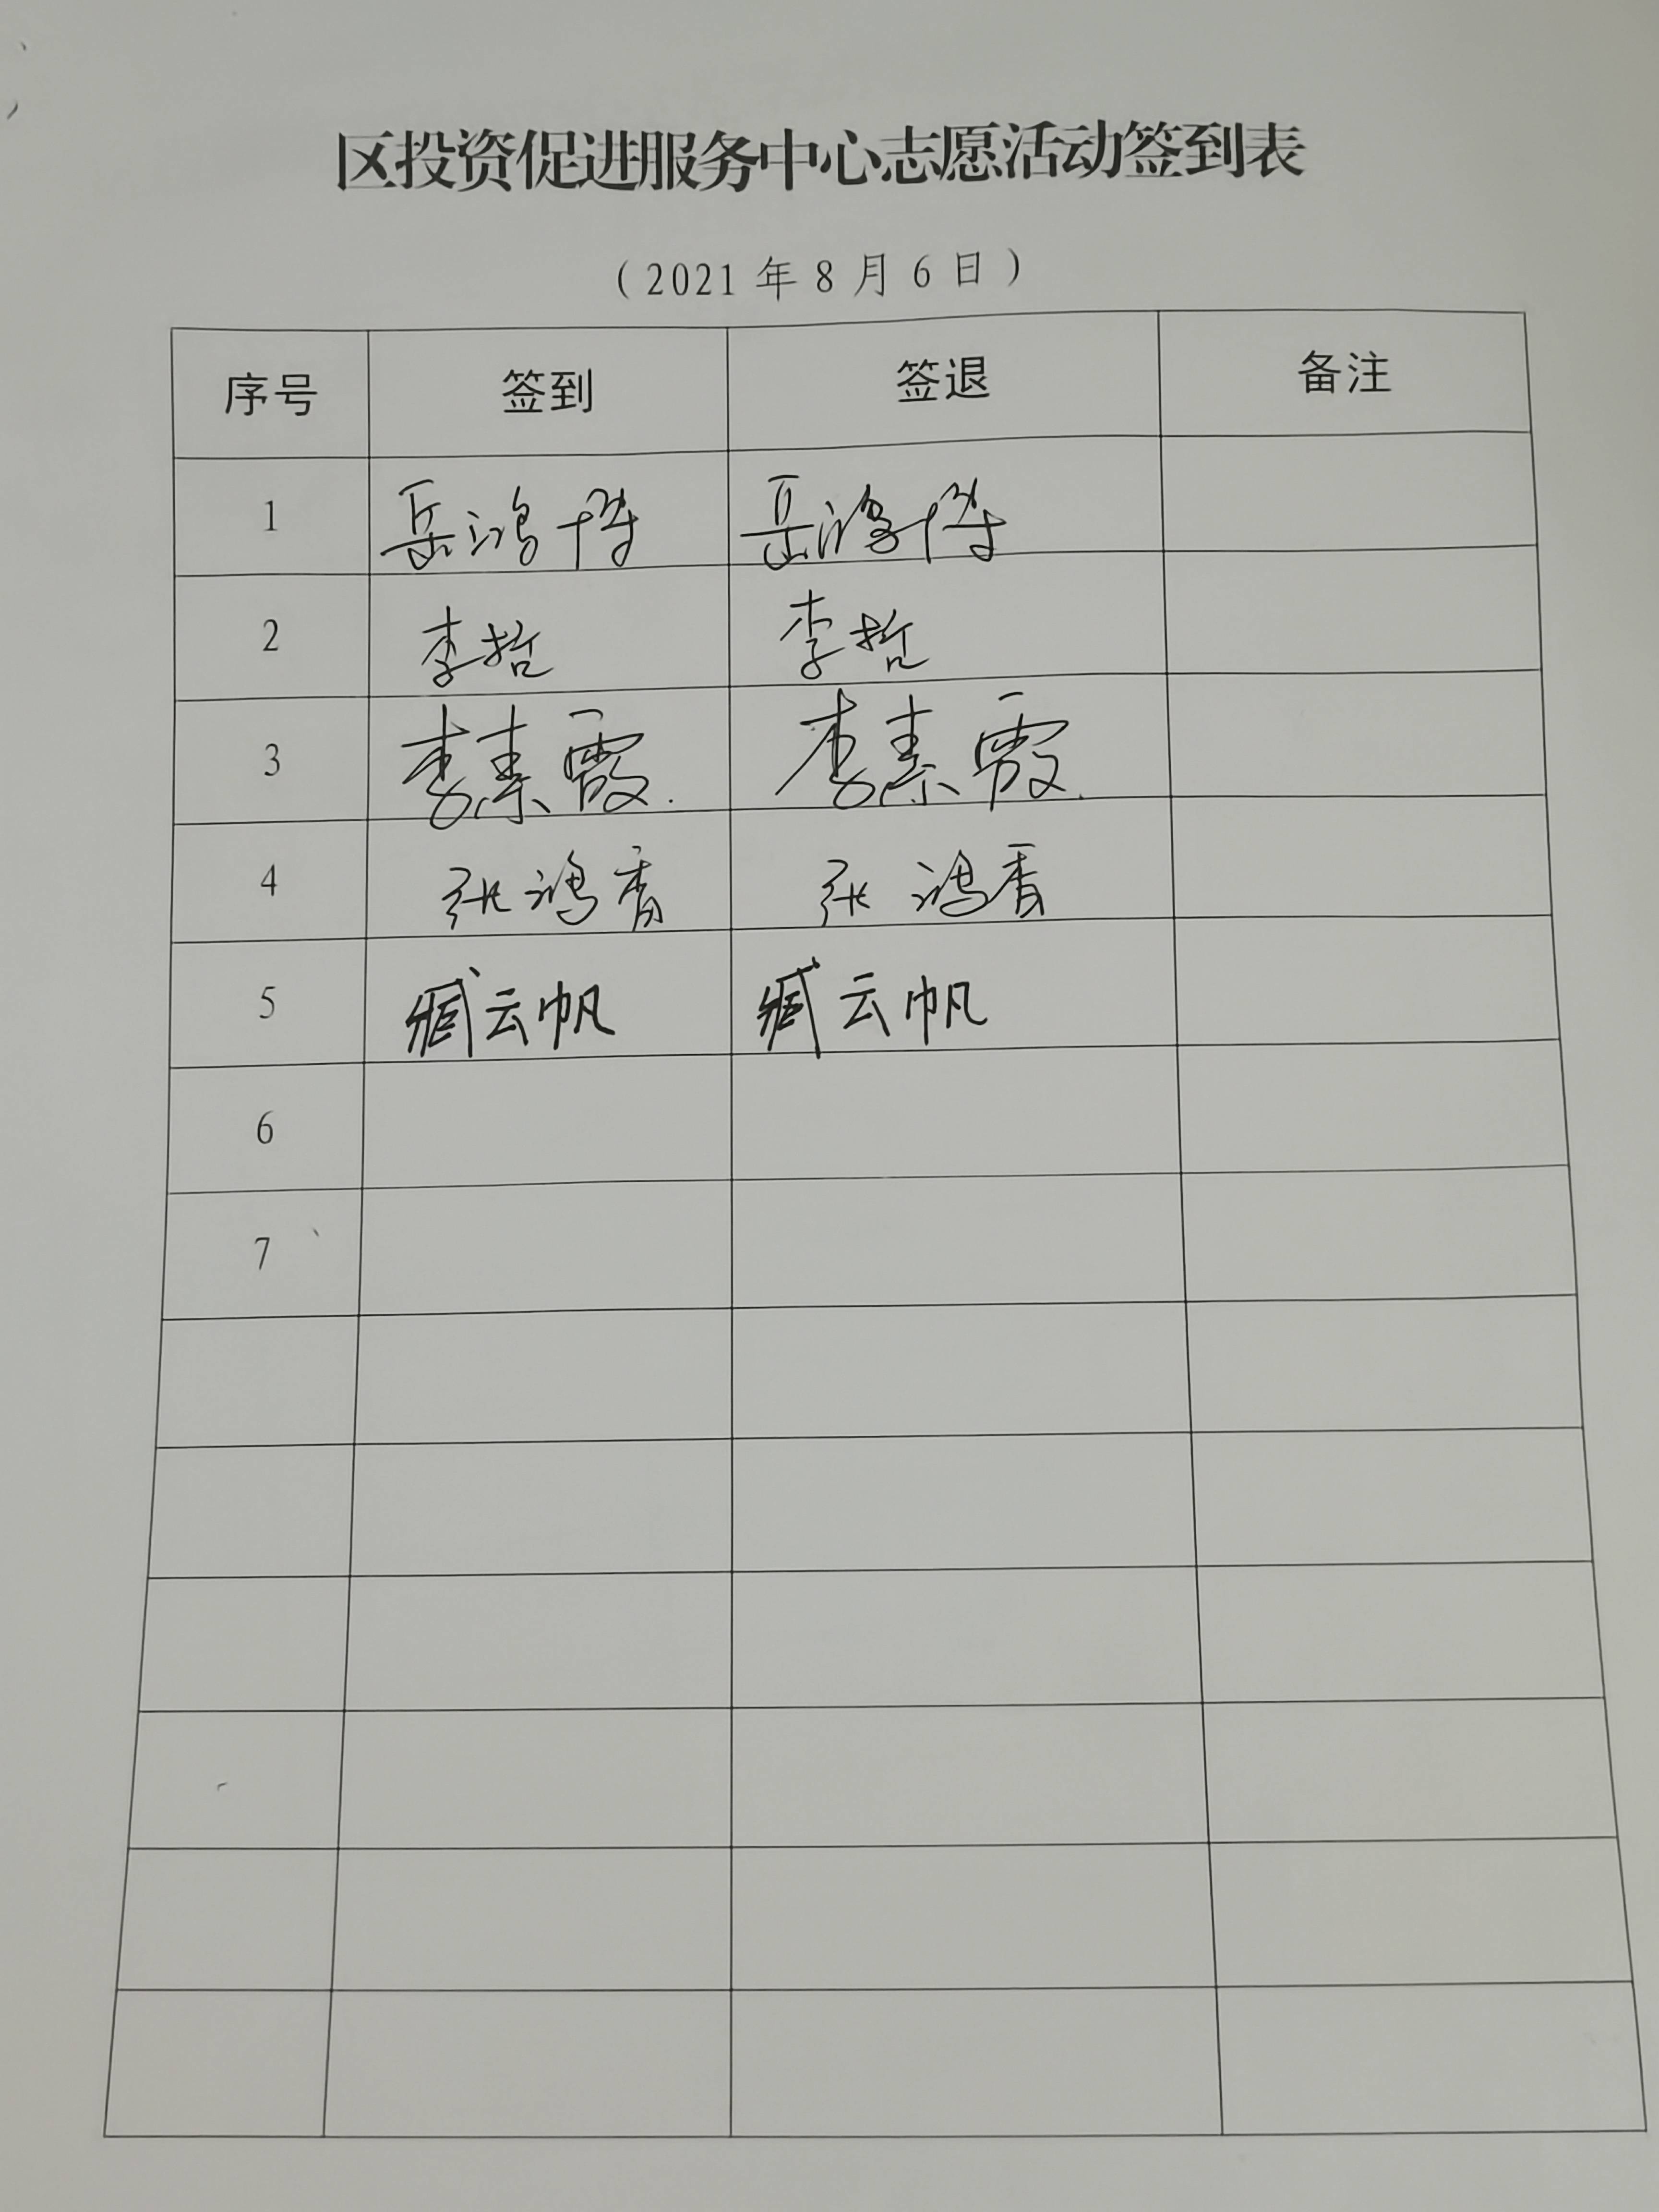 区投资促进服务中心志愿活动签到表
（2021 年 8 月 6 日）
序号 签到 签退 备注
1 岳鸿博 岳鸿博
2 李哲 李哲
3 李素霞 李素霞
4 张鸿香 张鸿香
5 臧云帆 臧云帆
6
7